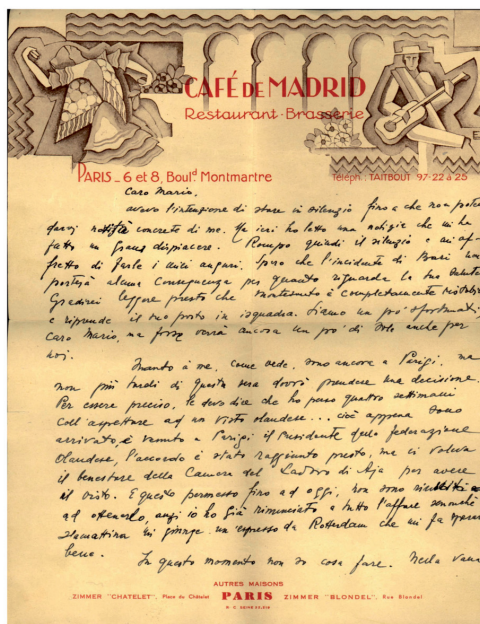 CAFÉ DE MADRID
Restaurant-Brasserie
PARIS - 6 et 8, Boulᵈ Montmartre
Téléph.: TAITBOUT 97-22 à 25
Caro Mario,
avevo l'intenzione di stare in silenzio fino a che non potevo
darvi notizie concrete di me. Ma ieri ho letto una notizia che mi ha
fatto un grand dispiacere. Rompo quindi il silenzio e mi af-
fretto di farle i miei auguri. Spero che l'incidente di Bari non
porterà alcuna conseguenza per quanto riguarda la tua salute.
Gradirei leggere presto che è completamente ristabilito
e riprende il suo posto in isquadra. Siamo un po' sfortunati,
Caro Mario, ma forse verrà ancora un po' di sole anche per
noi.
Quanto a me, come vede, sono ancora a Parigi, ma
non più tardi di questa sera dovrò prendere una decisione.
Per essere preciso, le devo dire che ho perso quattro settimane
coll'aspettare ad un visto olandese... cioè appena sono
arrivato è venuto a Parigi il Presidente della federazione
Olandese, l'accordo è stato raggiunto presto, ma ci voleva
il benestare della Camera del Lavoro di Aja per avere
il visto. E questo permesso fino ad oggi, non sono
ad ottenerlo, anzi io ho già rinunciato a tutto l'affare sennonché
stamattina mi giunge un espresso da Rotterdam che mi fa sperare
bene.
In questo momento non so cosa fare. Nella
AUTRES MAISONS
ZIMMER "CHATELET", Place du Châtelet PARIS ZIMMER "BLONDEL", Rue Blondel